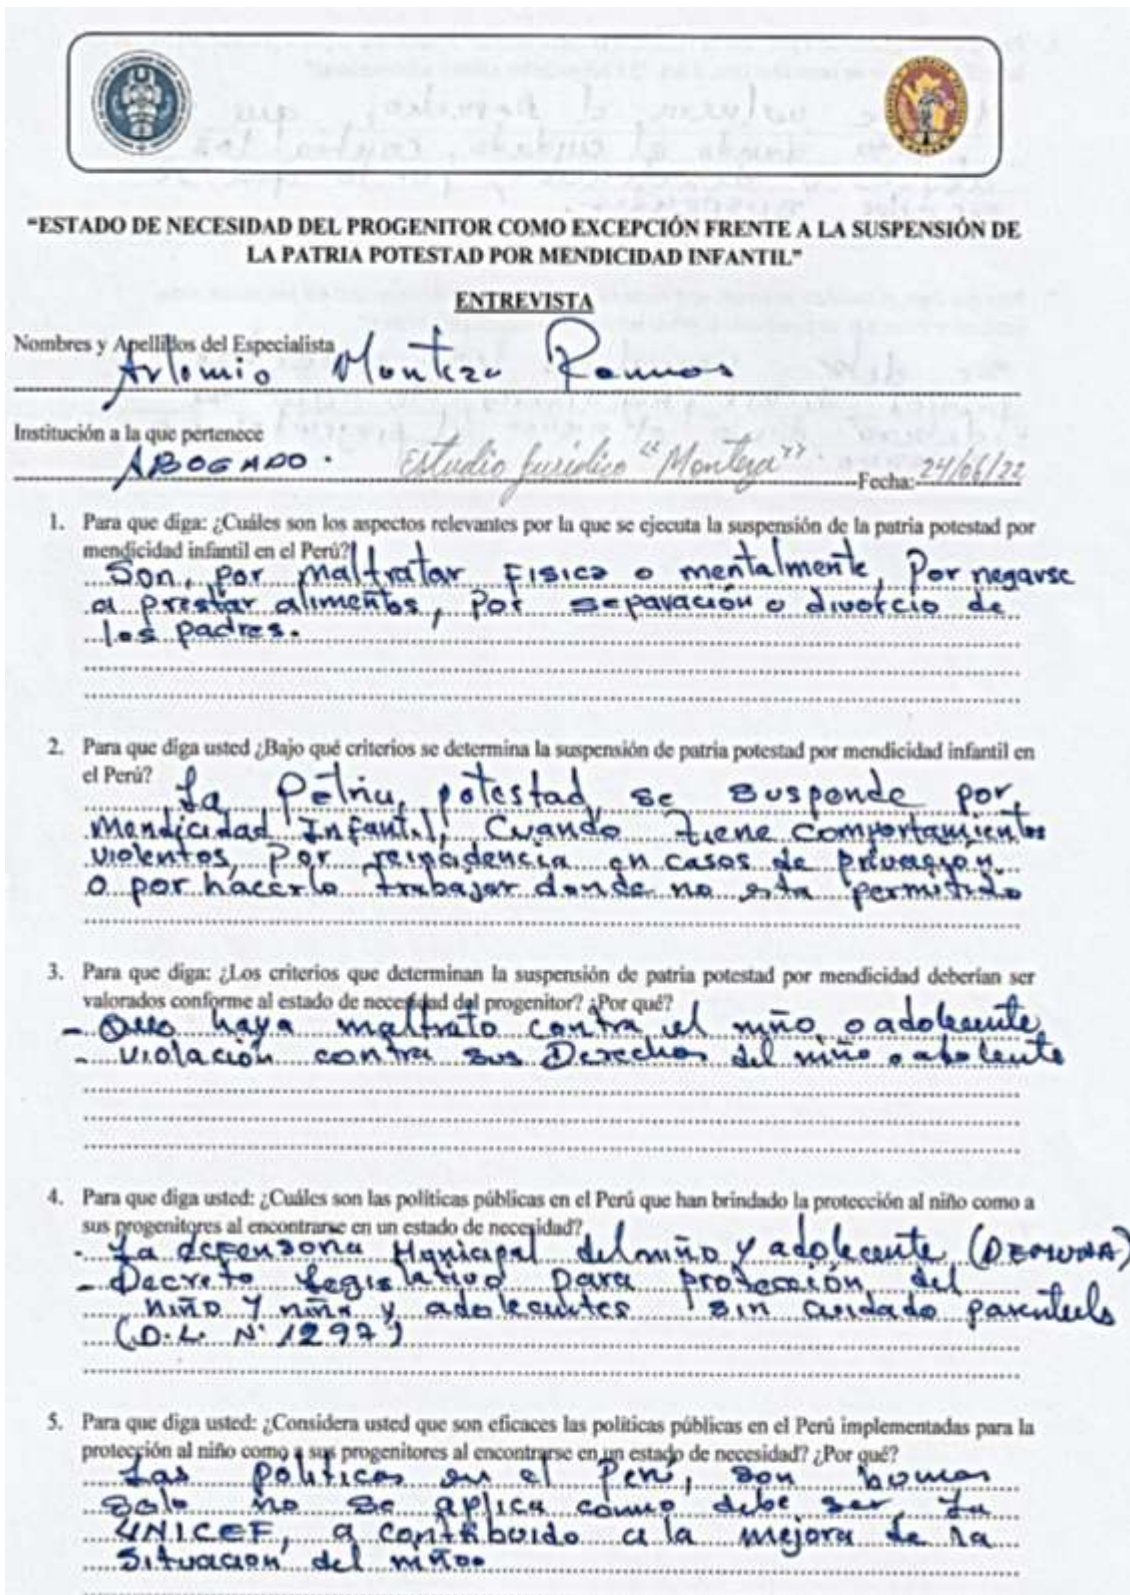 “ESTADO DE NECESIDAD DEL PROGENITOR COMO EXCEPCIÓN FRENTE A LA SUSPENSIÓN DE
LA PATRIA POTESTAD POR MENDICIDAD INFANTIL”
ENTREVISTA
Nombres y Apellidos del Especialista
Artemio Montezo Ramos
Institución a la que pertenece
ABOGADO. Estudio jurídico "Monteza" Fecha: 24/06/22
1. Para que diga: ¿Cuáles son los aspectos relevantes por la que se ejecuta la suspensión de la patria potestad por
mendicidad infantil en el Perú?
Son, por maltratar Fisica o mentalmente, Por negarse
a prestar alimentos, Por separación o divorcio de
los padres.
2. Para que diga usted ¿Bajo qué criterios se determina la suspensión de patria potestad por mendicidad infantil en
el Perú?
La Patria, potestad, se suspende por,
Mendicidad Infantil, Cuando tiene comportamientos
violentos, Por reincidencia en casos de privación
o por hacerlo trabajar donde no esta permitido
3. Para que diga: ¿Los criterios que determinan la suspensión de patria potestad por mendicidad deberían ser
valorados conforme al estado de necesidad del progenitor? ¿Por qué?
- Que haya maltrato contra el niño o adolecente
- violación contra sus Derechos del niño o
4. Para que diga usted: ¿Cuáles son las políticas públicas en el Perú que han brindado la protección al niño como a
sus progenitores al encontrarse en un estado de necesidad?
- La defensoria Municipal del niño y adolecente (DEMUNA)
- Decreto legislativo para protección del
niño y niña y adolecentes sin cuidado
(D.L. N° 1297)
5. Para que diga usted: ¿Considera usted que son eficaces las políticas públicas en el Perú implementadas para la
protección al niño como a sus progenitores al encontrarse en un estado de necesidad? ¿Por qué?
Las politicas en el Perú, son buenas
solo no se aplica como debe ser. La
UNICEF, a contribuido a la mejora de la
situación del niño